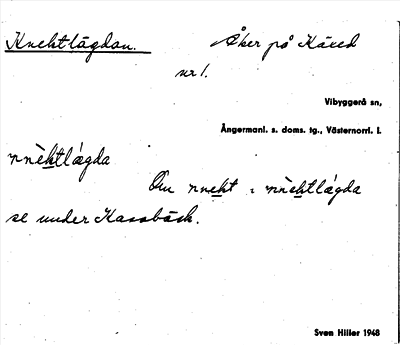 Knektlägdan. Åker på Käxed
nr 1.
Vibyggerå sn,
Ångermanl. s. doms. tg., Västernorrl. l.
nnèktlágda
Om nnekt i nnèktlágda
se under Kassbäck.
Sven Hiller 1948